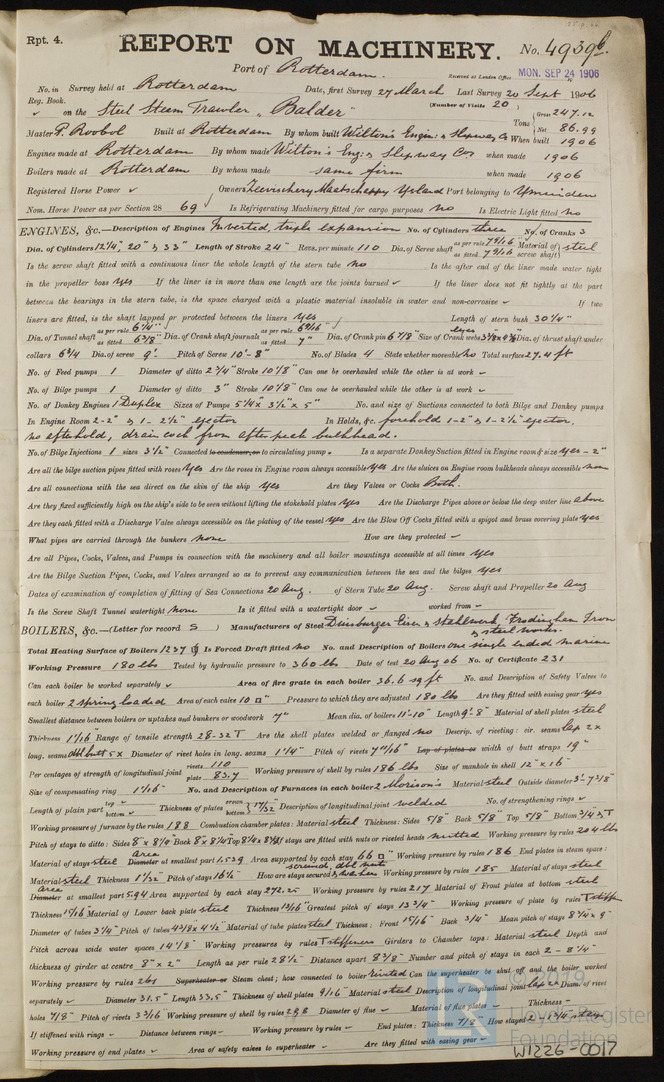 Rpt. 4.
REPORT ON MACHINERY. No. 49396.
Port of Rotterdam.
Received at London Office MON. SEP 24 1906
No. in Survey held at Rotterdam Date, first Survey 27 March Last Survey 20 Sept 1906
Reg. Book. (Number of Visits 20)
✓ on the Steel Steam Trawler "Balder" Tons { Gross 247.12 Net 86.99
Master P. Roobol Built at Rotterdam By whom built Wilton's Engin: & Slipway Co When built 1906
Engines made at Rotterdam By whom made Wilton's Eng: & Slipway Coy when made 1906
Boilers made at Rotterdam By whom made same firm when made 1906
Registered Horse Power ✓ Owners Visscherij Maatschappij Port belonging to Ymuiden
Nom. Horse Power as per Section 28 69 ✓ Is Refrigerating Machinery fitted for cargo purposes no Is Electric Light fitted no
ENGINES, &c.—Description of Engines Inverted, triple expansion No. of Cylinders three No. of Cranks 3
Dia. of Cylinders 12¼" 20" & 33" Length of Stroke 24" Revs. per minute 110 Dia. of Screw shaft as per rule 7 9/16 as fitted 7 9/16 Material of screw shaft steel
Is the screw shaft fitted with a continuous liner the whole length of the stern tube no Is the after end of the liner made water tight
in the propeller boss yes If the liner is in more than one length are the joints burned ✓ If the liner does not fit tightly at the part
between the bearings in the stern tube, is the space charged with a plastic material insoluble in water and non-corrosive ✓ If two
liners are fitted, is the shaft lapped or protected between the liners yes Length of stern bush 30¼"
Dia. of Tunnel shaft as per rule 6¼" as fitted 6⅜" Dia. of Crank shaft journals as per rule 6 9/16" as fitted 7" Dia. of Crank pin 6⅞" Size of Crank webs Dia. of thrust shaft under
collars 6¾ Dia. of screw 9' Pitch of Screw 10'-8" No. of Blades 4 State whether moveable no Total surface 27.4 ft
No. of Feed pumps 1 Diameter of ditto 2¾" Stroke 10⅛" Can one be overhauled while the other is at work ✓
No. of Bilge pumps 1 Diameter of ditto 3" Stroke 10⅛" Can one be overhauled while the other is at work ✓
No. of Donkey Engines 1 Duplex Sizes of Pumps 5¼" x 3½" x 5" No. and size of Suctions connected to both Bilge and Donkey pumps
In Engine Room 2-2" & 1-2½" ejector In Holds, &c. forehold 1-2" & 1-2½" ejector,
no afterhold, drain cock from after peak bulkhead.
No. of Bilge Injections 1 sizes 3½" Connected to condenser, or to circulating pump . Is a separate Donkey Suction fitted in Engine room & size yes - 2"
Are all the bilge suction pipes fitted with roses yes Are the roses in Engine room always accessible yes Are the sluices on Engine room bulkheads always accessible none
Are all connections with the sea direct on the skin of the ship yes Are they Valves or Cocks Both.
Are they fixed sufficiently high on the ship's side to be seen without lifting the stokehold plates yes Are the Discharge Pipes above or below the deep water line above
Are they each fitted with a Discharge Valve always accessible on the plating of the vessel yes Are the Blow Off Cocks fitted with a spigot and brass covering plate yes
What pipes are carried through the bunkers none How are they protected ✓
Are all Pipes, Cocks, Valves, and Pumps in connection with the machinery and all boiler mountings accessible at all times yes
Are the Bilge Suction Pipes, Cocks, and Valves arranged so as to prevent any communication between the sea and the bilges yes
Dates of examination of completion of fitting of Sea Connections 20 Aug. of Stern Tube 20 Aug. Screw shaft and Propeller 20 Aug
Is the Screw Shaft Tunnel watertight none Is it fitted with a watertight door ✓ worked from ✓
BOILERS, &c.—(Letter for record S) Manufacturers of Steel Duisburger Eisen & Stahlwerk, Frodingham Iron
& steel works.
Total Heating Surface of Boilers 1237 Is Forced Draft fitted no No. and Description of Boilers one single ended marine
Working Pressure 180 lbs Tested by hydraulic pressure to 360 lbs Date of test 20 Aug 06 No. of Certificate 231
Can each boiler be worked separately ✓ Area of fire grate in each boiler 36.6 sq ft No. and Description of Safety Valves to
each boiler 2 spring loaded Area of each valve 10 □" Pressure to which they are adjusted 180 lbs Are they fitted with easing gear yes
Smallest distance between boilers or uptakes and bunkers or woodwork 7" Mean dia. of boilers 11'-10" Length 9'-8" Material of shell plates steel
Thickness 1 1/16" Range of tensile strength 28-32 T Are the shell plates welded or flanged no Descrip. of riveting: cir. seams lap 2x
long. seams dbl butt 5x Diameter of rivet holes in long. seams 1¼" Pitch of rivets 7 11/16" Lap of plates or width of butt straps 19"
Per centages of strength of longitudinal joint rivets 110 plate 83.7 Working pressure of shell by rules 186 lbs Size of manhole in shell 12" x 16"
Size of compensating ring 1 1/16" No. and Description of Furnaces in each boiler 2 Morison's Material steel Outside diameter 3'-7⅜"
Length of plain part top ✓ bottom ✓ Thickness of plates crown bottom } 17/32" Description of longitudinal joint welded No. of strengthening rings ✓
Working pressure of furnace by the rules 188 Combustion chamber plates: Material steel Thickness: Sides 5/8" Back 5/8" Top 5/8" Bottom
Pitch of stays to ditto: Sides Back Top If stays are fitted with nuts or riveted heads nutted Working pressure by rules 204 lbs
Material of stays steel Area Diameter at smallest part 1.539 Area supported by each stay 66 □" Working pressure by rules 186 End plates in steam space:
Material steel Thickness 1 1/32" Pitch of stays 16½" How are stays secured screwed, dbl nuts & washers Working pressure by rules 185 Material of stays steel
Area Diameter at smallest part 5.94 Area supported by each stay 272.25 Working pressure by rules 217 Material of Front plates at bottom steel
Thickness 15/16" Material of Lower back plate steel Thickness 13/16" Greatest pitch of stays 13¾" Working pressure of plate by rules T stiffn
Diameter of tubes 3¼" Pitch of tubes 4⅜ x 4½" Material of tube plates steel Thickness: Front 15/16" Back ¾" Mean pitch of stays 8¾ x 9"
Pitch across wide water spaces 14⅛" Working pressures by rules T stiffeners Girders to Chamber tops: Material steel Depth and
thickness of girder at centre 8" x 2" Length as per rule 28½" Distance apart 8⅜" Number and pitch of stays in each 2 - 8¼"
Working pressure by rules 261 Superheater or Steam chest; how connected to boiler riveted Can the superheater be shut off and the boiler worked
separately ✓ Diameter 31.5" Length 33.5" Thickness of shell plates 9/16" Material steel Description of longitudinal joint lap 2x Diam. of rivet
holes 7/8" Pitch of rivets 3 3/16 Working pressure of shell by rules 298 Diameter of flue ✓ Material of flue plates ✓ Thickness ✓
If stiffened with rings ✓ Distance between rings ✓ Working pressure by rules ✓ End plates: Thickness 7/8" How stayed 2 - 1¾" stays
Working pressure of end plates ✓ Area of safety valves to superheater ✓ Are they fitted with easing gear ✓
© 2019
Lloyd's Register
Foundation
W1226-0017